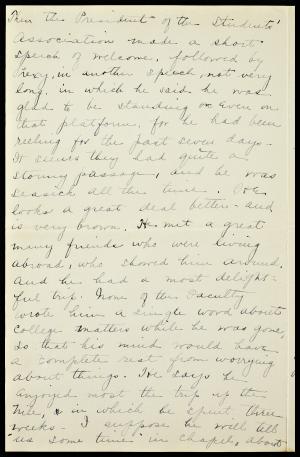 Then the President of the Students'
Association made a short
speech of welcome, followed by
Prexy, in another speech, not very
long, in which he said he was
glad to be standing on even on
that platform, for he had been
reeling for the past seven days.
It seems they had quite a
stormy passage, and he was
seasick all the time.
looks a great deal better - and
is very brown. He met a great
many friends who were living
abroad, who showed him around.
And he had a most delight-
ful trip. None of the Faculty
wrote him a single word about
college matters while he was gone,
so that his mind would have
a complete rest from worrying
about things. He says he
enjoyed most the trip up the
Nile, in which he spent three
weeks - I suppose he will tell
us some time in chapel, about